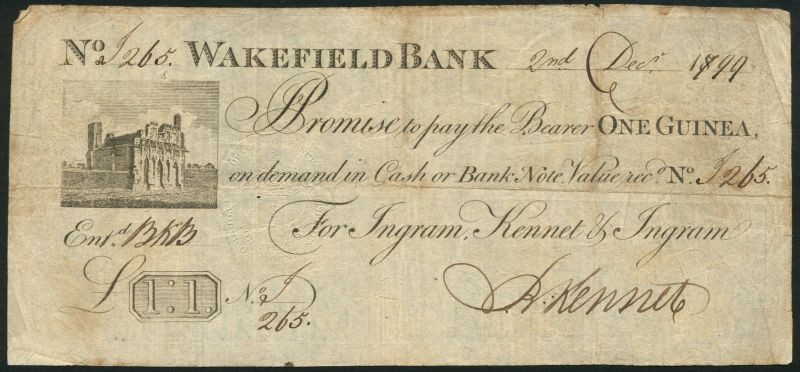 No. J265. WAKEFIELD BANK 2nd Decr. 1799
I Promise to pay the Bearer ONE GUINEA,
on demand in Cash or Bank Note. Value recd. No. J265.
Entd. BKB For Ingram, Kennet & Ingram
£ 1:1. No. J
265. R. Kennet